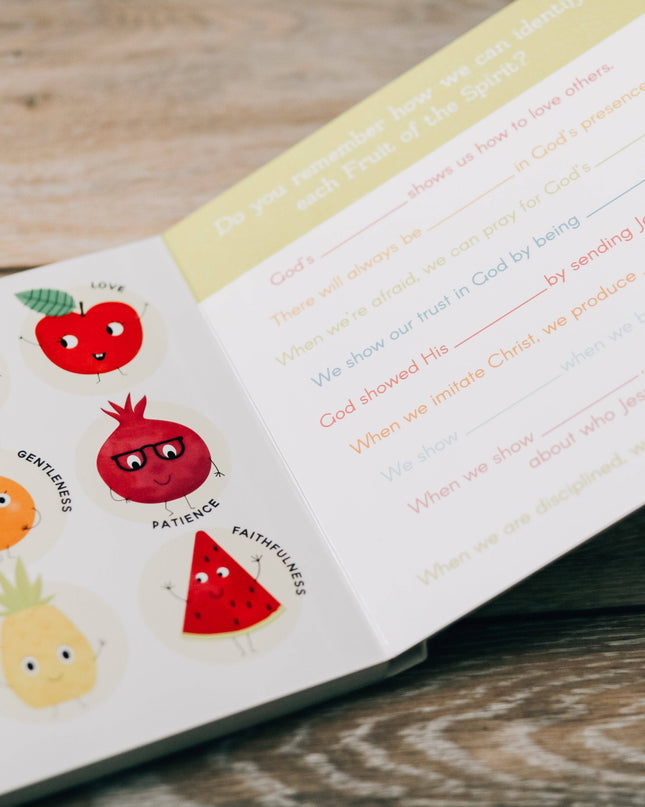 LOVE
GENTLENESS
PATIENCE
FAITHFULNESS
Do you remember how we can identify
each Fruit of the Spirit?
God's ________ shows us how to love others.
There will always be ________ in God's presence
When we're afraid, we can pray for God's ________
We show our trust in God by being ________
God showed His ________ by sending
When we imitate Christ, we produce
We show ________ when we
When we show ________
about who
When we are disciplined,